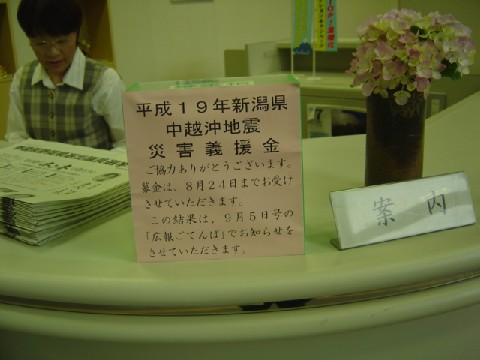 平成19年新潟県
中越沖地震
災害義援金
ご協力ありがとうございます。
募金は、8月24日までお受け
させていただきます。
この結果は、9月5日号の
「広報ごてんば」でお知らせを
させていただきます。
案内